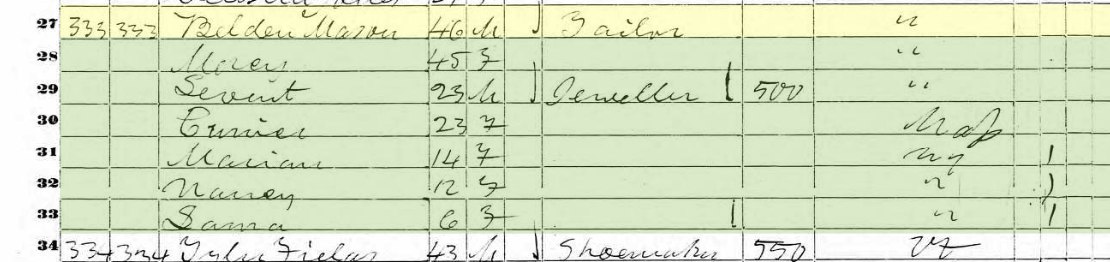 27 333 333 Belden Mason 46 M Tailor "
28 45 F "
29 23 M Jeweller 500 "
30 23 F Mass
31 Marian 14 F NY 1
32 Nancy 12 F " 1
33 6 F " 1
34 334 334 43 M Shoemaker 550